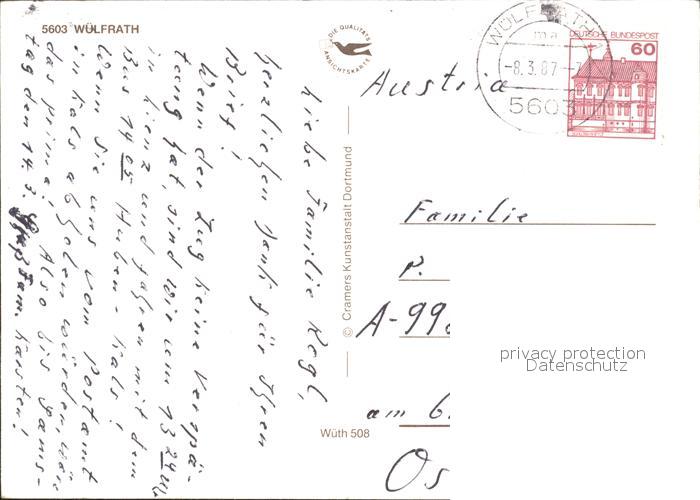 5603 WÜLFRATH
DIE QUALITÄTS
ANSICHTSKARTE
Liebe Familie Kogl,
herzlichen Dank für Ihren
Brief!
Wenn der Zug keine Verspä-
tung hat, sind wir um 13 24 Uhr
in Lienz und fahren mit dem
Bus 14 05 Huben - Kals;
Wenn Sie uns vom Postamt
in Kals abholen würden, wäre
das prima! Also bis Sams-
tag den 14.3. Gruß Fam. Karsten!
© Cramers Kunstanstalt Dortmund
Wüth 508
WÜLFRATH
ma
-8.3.87-7
5603
DEUTSCHE BUNDESPOST
60
Austria
Familie
P.
A-99
am G.
Os
privacy protection
Datenschutz